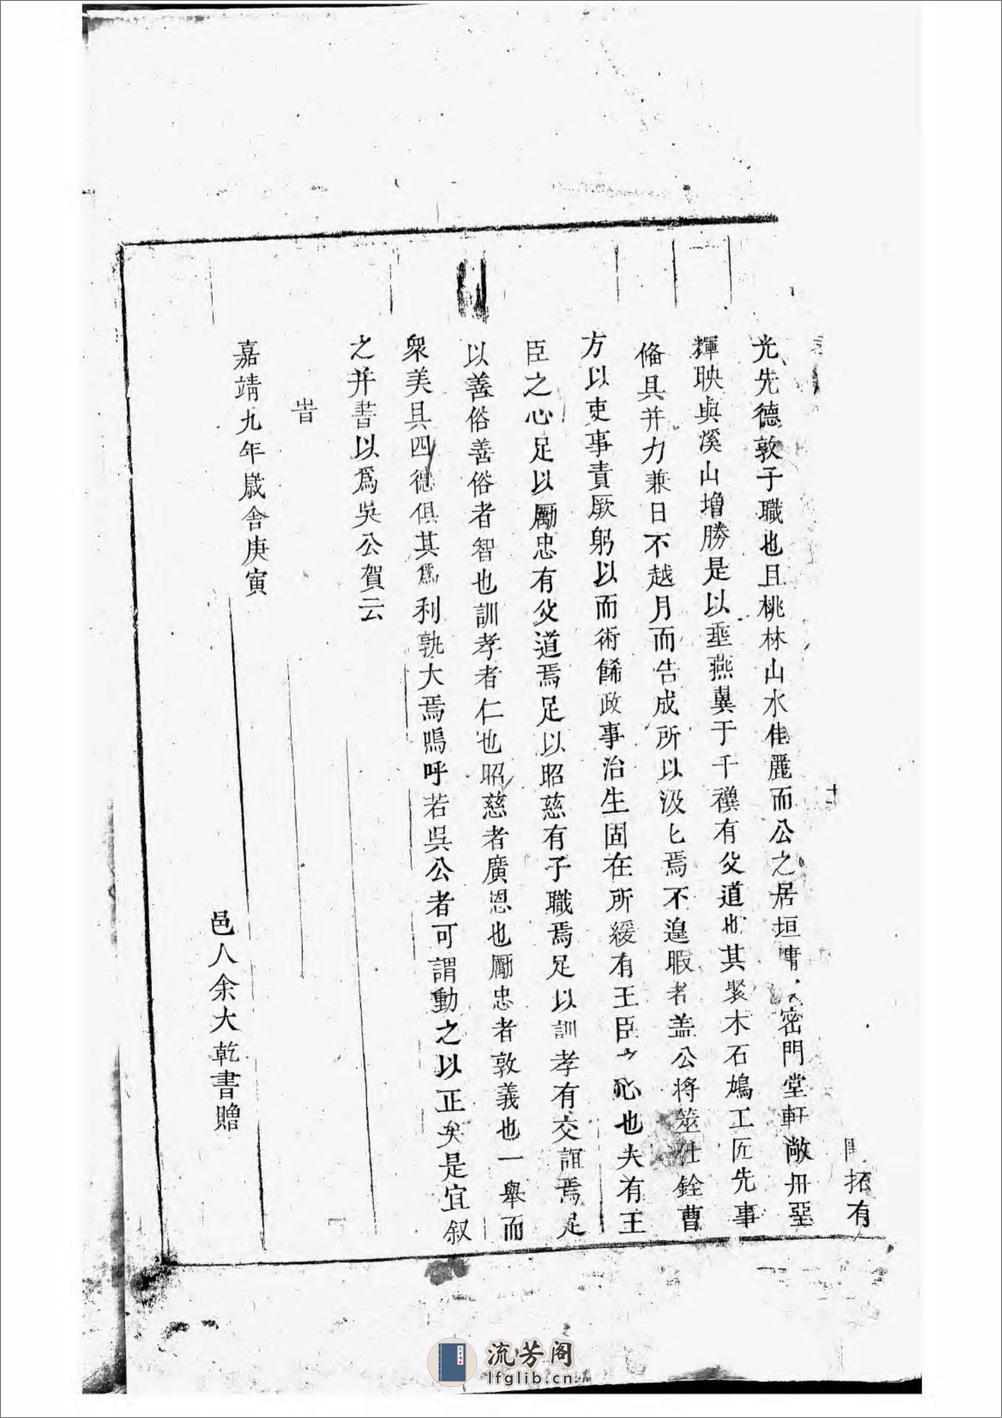 拓有
光先德敦子職也且桃林山水佳麗而公之居垣墉密門堂軒敞丹堊
輝映與溪山增勝是以垂燕翼于千禩有父道也其聚木石鳩工匠先事
俻具并力兼日不越月而告成所以汲匕焉不遑暇者盖公將筮仕銓曹
方以吏事責厥躬以而術餙政事治生固在所緩有王臣之心也夫有王
臣之心足以勵忠有父道焉足以昭慈有子職焉足以訓孝有交誼焉足
以善俗善俗者智也訓孝者仁也昭慈者廣恩也勵忠者敦義也一舉而
衆美具四德俱其爲利孰大焉嗚呼若吳公者可謂動之以正矣是宜叙
之并書以爲吳公賀云
旹
嘉靖九年歲舍庚寅
邑人余大乾書贈
流芳阁
lfglib.cn